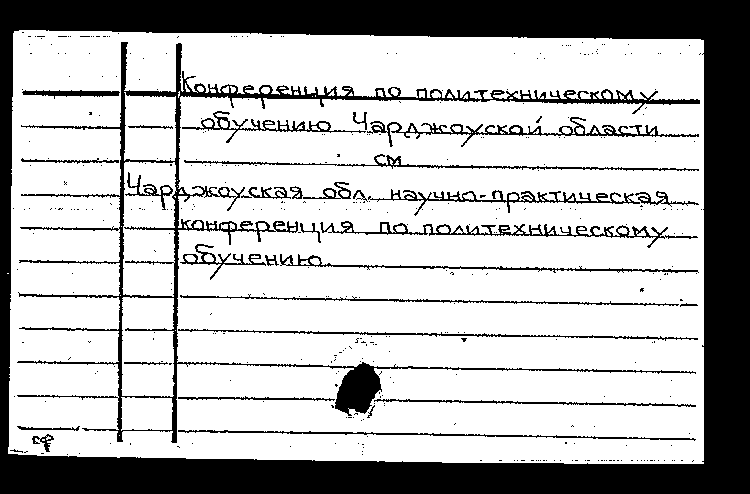 Конференция по политехническому
обучению Чарджоуской области
см
Чарджоуская обл. научно-практическая
конференция по политехническому
обучению.